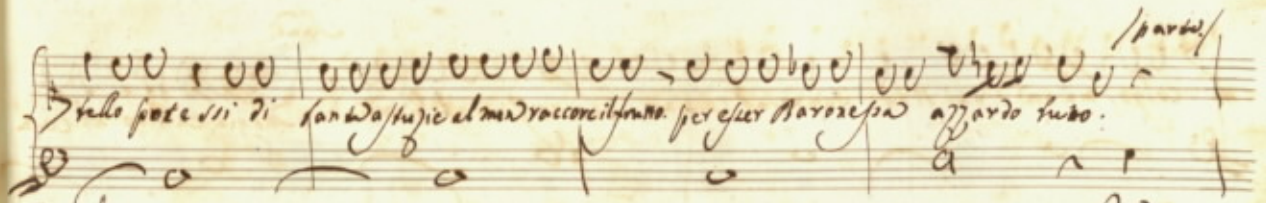 /parte./
tello potessi di tante astuzie almen raccore il frutto. per esser Baronessa azzardo tutto.